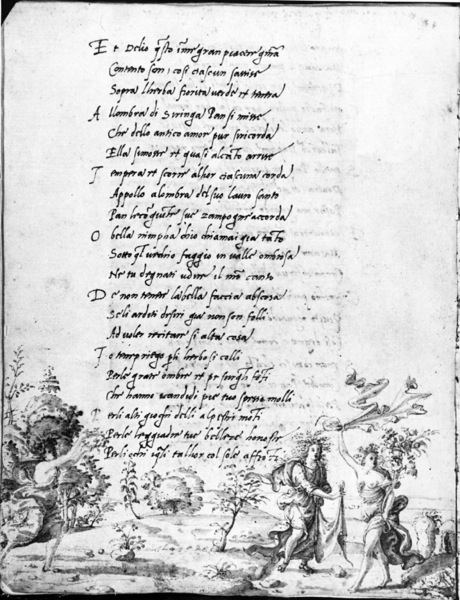 Et Delio q̃sto gran piacere
Contento son; cosi ciascun
Sopra lherba fiorita verde et tenera
A llombra di Siringa Pan si misse
Che dello antico amor pur siricorda
Ella simosse et quasi alcãto arrise
T empera et scorre alhor ciascuna corda
Appollo alombra del suo lauro santo
Pan le cõgiũte sue zampogne accorda
O bella nimpha chio chiamai gia tãto
Sotto ql vechio faggio in valle ombrosa
Ne tu degnasti udire il mio canto
D e non tener labella faccia abscosa
Seli arditi desiri gia non son folli
Ad voler recitare si alta cosa
I o tenepriego p̃ li herbosi colli
Perle grate õmbre et pe fõti
Che hanno ecandidi pie tuo spesso molli
P erli alti gioghi delli alpestri mõti
Perle leggiadre tue bellezze honeste
Perli ochi talhor col sole affrõti